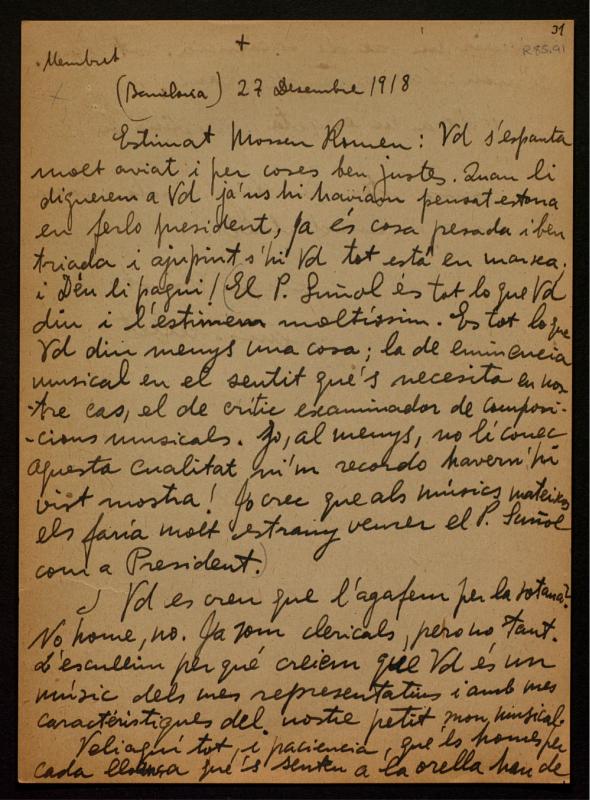 31
R 85.91
Membret
+
(Barcelona) 27 Desembre 1918
Estimat Mossen Romeu: Vd s'espanta
molt aviat i per coses ben justes. Quan li
diguerem a Vd ja'ns hi haviam pensat estona
en ferlo president, Ja és cosa pesada i ben
triada i ajupint s'hi Vd tot està en marxa,
i Déu li pagui! (El P. Suñol és tot lo que Vd
diu i l'estimem moltissim. Es tot lo que
Vd diu menys una cosa; la de eminencia
musical en el sentit qué's necesita en nos-
tre cas, el de critic examinador de composi-
-cions musicals. Jo, al menys, no li conec
aquesta cualitat ni'm recordo havern'hi
vist mostra! Jo crec que als músics mateixos
els faría molt estrany veurer el P. Suñol
com a President.)
Vd es creu que l'agafem per la sotana?
No home, no. Ja som clericals, pero no tant.
L'escullim per qué creiem que Vd és un
músic dels mes representatius i amb mes
caractéristiques del nostre petit mon musical.
Veliaquí tot, i paciencia, qué ls homes per
cada qué's senten a la orella han de